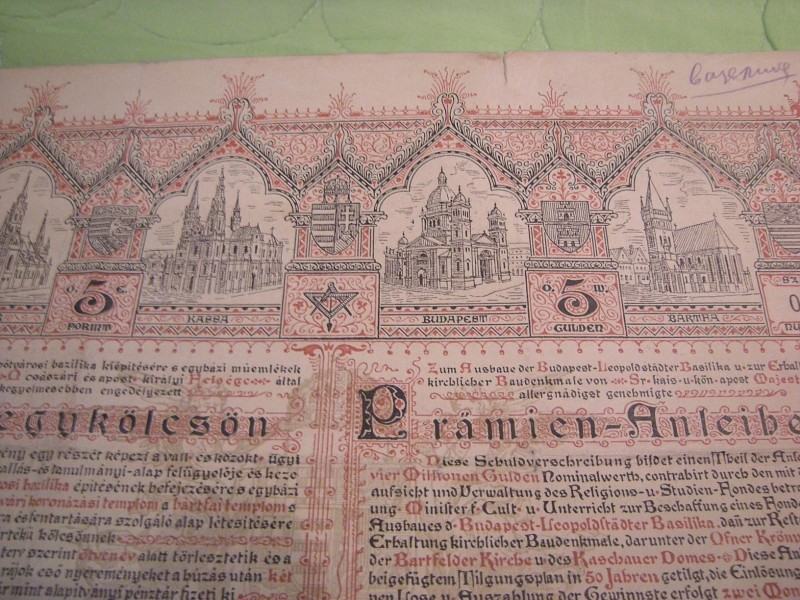 5
FORINT
KASSA
BUDAPEST
Ö. W.
5
GULDEN
BARTFA
pótvárosi bazilika kiépítésére s egyházi műemlékek
császári és apost. királyi Felsége által
kegyelmesebben engedélyezett
egykölcsön
ény egy részét képezi a vall- és közokt- ügyi
allás- és tanulmányi-alap felügyelője és keze
osi bazilika építésének befejezésére s egyházi
vári koronázási templom a bártfai templom s
ra és fentartására szolgáló alap létesítésére
értékü kölcsönnek
terv szerint ötven év alatt törlesztetik és a
árjok eső nyereményeket a húzás után két
ár mint alapítványi pénztár fizeti ki
Zum Ausbaue der Budapest-Leopoldstädter Basilika u. zur Erhalt
kirchlicher Baudenkmale von Sr. kais. u. kön. apost Majest
allergnädigst genehmigte
Prämien-Anleihe
Diese Schuldverschreibung bildet einen Theil der Anle
vier Millionen Gulden Nominalwerth, contrahirt durch den mit
aufsicht und Verwaltung des Religions- u. Studien-Fondes betra
ung. Minister f. Cult- u. Unterricht zur Beschaffung eines Fonde
Ausbaues d. Budapest-Leopoldstädter Basilika, dañ zur Rest
Erhaltung kirchlicher Baudenkmale, darunter der Ofner Krönu
der Bartfelder Kirche u. des Kaschauer Domes. Diese An
beigefügtem Tilgungsplan in 50 Jahren getilgt, die Einlösun
nen Lose u. Auszahlung der Gewinnste erfolgt zwei Mon